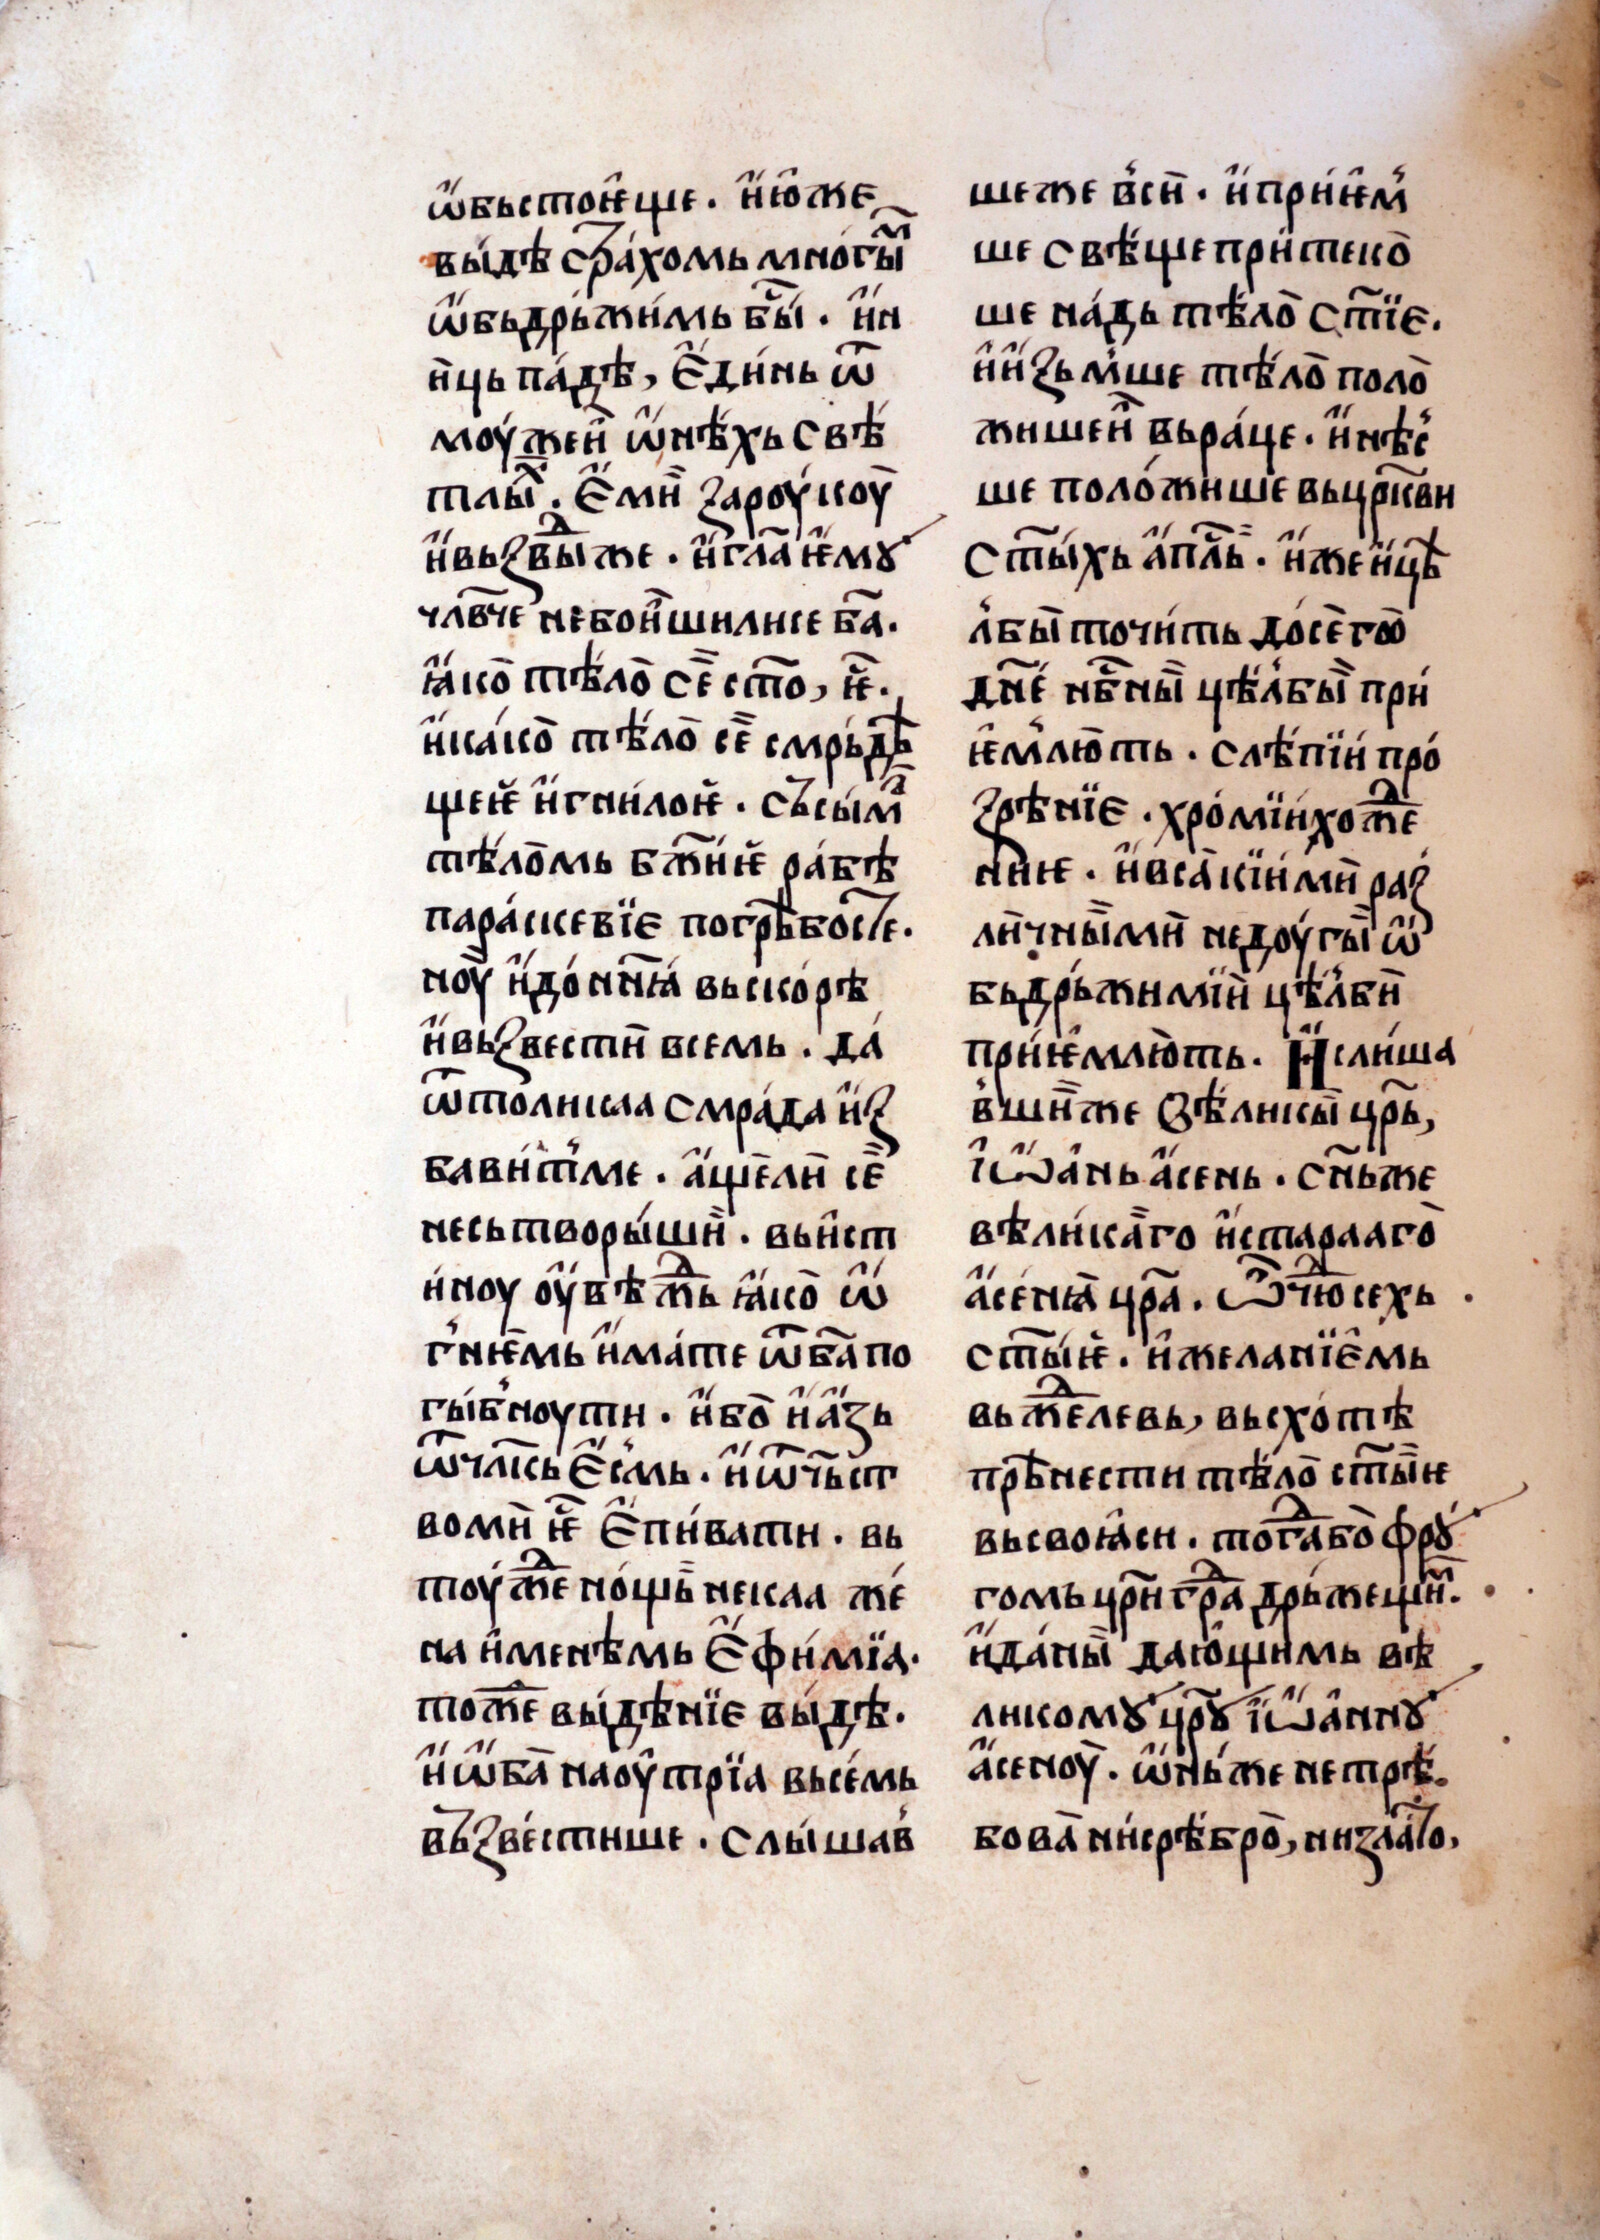 ѡ҆бьстоѥще. и҆ ю҆же
выдѣ стра́хомь мно́гы̏м
ѡ҆бьдрьжи́мь бы̑. и҆ ни
ць па́дѣ, є҆ди́нь ѿ
моу́жеи ѡ҆нѣ́хь свѣ́
тлы̏х. є҆ми за роу́коу
и҆ вьзⷣвыже. и҆ гла҃ ѥ҆мꙋ
члв҃че не боиши ли се ба҃.
ꙗ҆ко тѣ́ло се̏ ст҃о, ѥ҃.
и҆ ка́ко тѣ́ло се̏ смрь́дѣ
щеѥ и҆ гни́лоѥ. сь сы́мⷨ
тѣ́ломь бж҃иѥ ра́бѣ
пара́скевїе погрѣбосте.
ноу̏ и҆до́ ннꙗ҃ вьско́рѣ
и҆ вьзвести всемь. да́
ѿ толикаа смра́да и҆з
бави́т ме. а҆ще ли се̏
не сьтворы́ши. вь и҆ст
и́ноу оу҆вѣⷤжⷣь ꙗ҆ко ѡ҆
гнѥ́мь и҆ма́те ѿ ба҃ по
гы́бноути. и҆бо и҆ а҆зь
ѿ члк҃ь є҆смь. и҆ ѿчь҃ст
во ми ѥ҃ є҆пи́вати. вь
тоу́жⷣе но́щь некаа же́
на и҆менѣмь є҆фи́мїа.
тожⷣе вы́дѣнїе вы́дѣ.
и҆ ѡ҆ба на оу҆трїа вьсе́мь
вьзве́стише. слы́шав
ше же вси. и҆ при́ѥм
ше свѣ́ще при́теко
ше на́дь тѣ́ло ст҃їе.
и҆ и҆зьмше тѣ́ло поло
жише и вь ра́це. и҆ нѣ́с
ше поло́жише вь цр҃кви
ст҃ы́хь а҆пл҃ь. и҆же и҆ цѣ
лбы точи́ть до́ сего̏
дн҃е нб҃ны цѣ́лбы при́
ѥмлю́ть. слѣ́пїи про́
зрѣнїе. хро́мїи хожⷣе
ниѥ. и҆ вса́кїими ра́з
ли́чными недоу́гы ѡ҆
бьдрь́жимїи цѣ́лби
при́ѥмлють. И слы́ша
вши же вѣ́ликы цр҃ь,
і҆ѡ҆а́нь а҆сень. сн҃ь же
вѣ́лика́го и҆ стараго
а҆се́нꙗ цр҃а. ѿчⷭ҇ю сехь
ст҃ы́ѥ. и҆ желанїе́мь
вьжⷣелевь, вьсхо́тѣ
прѣнести тѣ́ло ст҃ы́ѥ
вь своꙗ́ си. тогⷣа бо фрꙋ
гомь цр҃и грⷣа дрь́жещи̏м.
и҆ да́ны даю́щи́мь вѣ
ликомꙋ цр҃ꙋ і҆ѡ҆а́ннꙋ
а҆сеноу̏. ѡ҆нь же не трѣ́
бова ни́ срѣбро, ни зла́то,